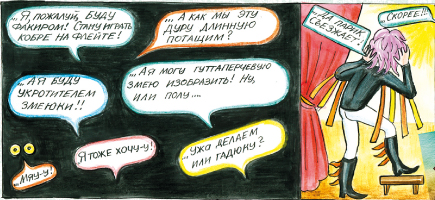 ...Я, ПОЖАЛУЙ, БУДУ
ФАКИРОМ! СТАНУ ИГРАТЬ
КОБРЕ НА ФЛЕЙТЕ!
...А КАК МЫ ЭТУ
ДУРУ ДЛИННУЮ
ПОТАЩИМ?
...А Я БУДУ
УКРОТИТЕЛЕМ
ЗМЕЮКИ!!
...А Я МОГУ ГУТТАПЕРЧЕВУЮ
ЗМЕЮ ИЗОБРАЗИТЬ! НУ,
ИЛИ ПОЛУ....
...МЯУ-У!
Я ТОЖЕ ХОЧУ-У!
...УЖА ДЕЛАЕМ
ИЛИ ГАДЮКУ?
...ДА ПАРИК
СЪЕЗЖАЕТ!
СКОРЕЕ!!